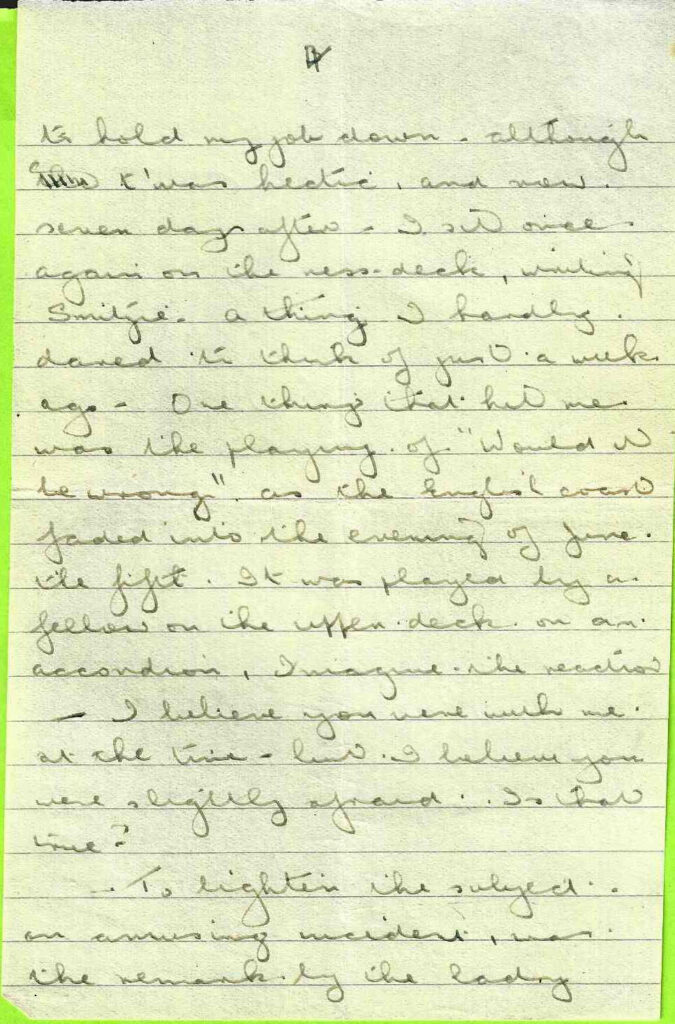 4
to hold my job down - although
t'was hectic, and now.
seven days after - I sit once
again on the mess-deck, writing
Smitzie - a thing I hardly
dared to think of just a week
ago - One thing that hit me
was the playing of "Would it
be wrong" as the English coast
faded into the evening of June
the fift. It was played by a
fellow on the upper deck on an
accordion, Imagine the reaction
- I believe you were with me
at the time - but I believe you
were slightly afraid. Is that
true?
- To lighten the subject -
an amusing incident, was
the remark by the